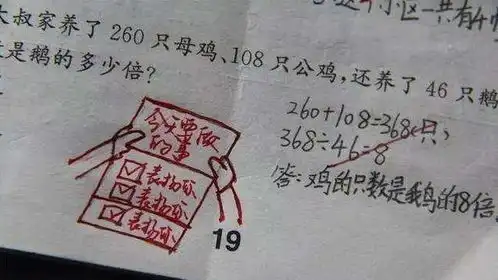 大叔家养了 260 只母鸡、108 只公鸡，还养了 46 只鹅
是鹅的多少倍？
260+108=368(只)
368÷46=8
答：鸡的只数是鹅的8倍
今天要做
的事
☑表扬你
☑表扬你
☑表扬你
19